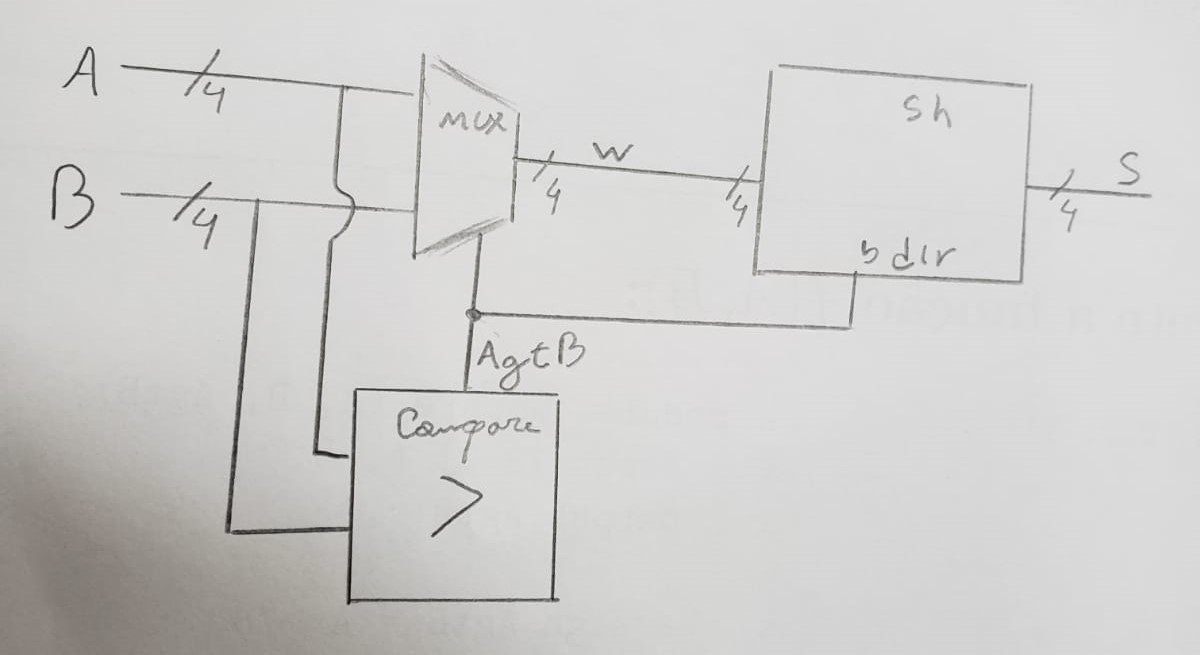 A
4
B
4
MUX
4
W
4
Sh
b dir
4
S
AgtB
Compare
>